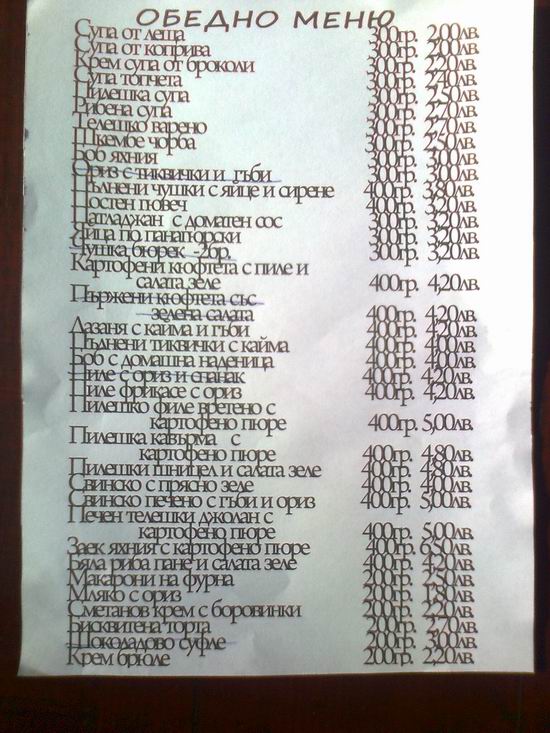 ОБЕДНО МЕНЮ
Супа от леща 300гр. 2,00лв.
Супа от коприва 300гр. 2,00лв.
Крем супа от броколи 300гр. 2,20лв.
Супа топчета 300гр. 2,40лв.
Пилешка супа 300гр. 2,50лв.
Рибена супа 300гр. 2,70лв.
Телешко варено 300гр.
Шкембе чорба 300гр.
Боб яхния 300гр. 3,00лв.
Ориз с тиквички и гъби 300гр. 3,00лв.
Пълнени чушки с яйце и сирене 400гр. 3,80лв.
Постен гювеч 400гр. 3,20лв.
Патладжан с доматен сос 300гр. 3,20лв.
Яйца по панагюрски 300гр.
Чушка бюрек -2бр. 300гр. 3,20лв.
Картофени кюфтета с пиле и
салата зеле 400гр. 4,20лв.
Пържени кюфтета със
зелена салата 400гр. 4,20лв.
Лазаня с кайма и гъби 400гр. 4,20лв.
Пълнени тиквички с кайма 400гр. 4,00лв.
Боб с домашна наденица 400гр. 4,00лв.
Пиле с ориз и спанак 400гр. 4,20лв.
Пиле фрикасе с ориз 400гр. 4,20лв.
Пилешко филе вретено с
картофено пюре 400гр. 5,00лв.
Пилешка кавърма с
картофено пюре 400гр. 4,80лв.
Пилешки шницел и салата зеле 400гр. 4,80лв.
Свинско с прясно зеле 400гр. 4,00лв.
Свинско печено с гъби и ориз 400гр. 5,00лв.
Печен телешки джолан с
картофено пюре 400гр. 5,00лв.
Заек яхния с картофено пюре 400гр. 6,50лв.
Бяла риба пане и салата зеле 400гр. 4,20лв.
Макарони на фурна 200гр. 2,50лв.
Мляко с ориз 200гр. 1,80лв.
Сметанов крем с боровинки 200гр. 2,20лв.
Бисквитена торта 200гр. 2,70лв.
Шоколадово суфле 200гр. 3,00лв.
Крем брюле 200гр. 2,20лв.